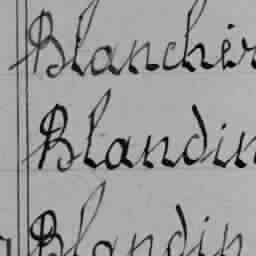 Blanchér
Blandin
Blandin